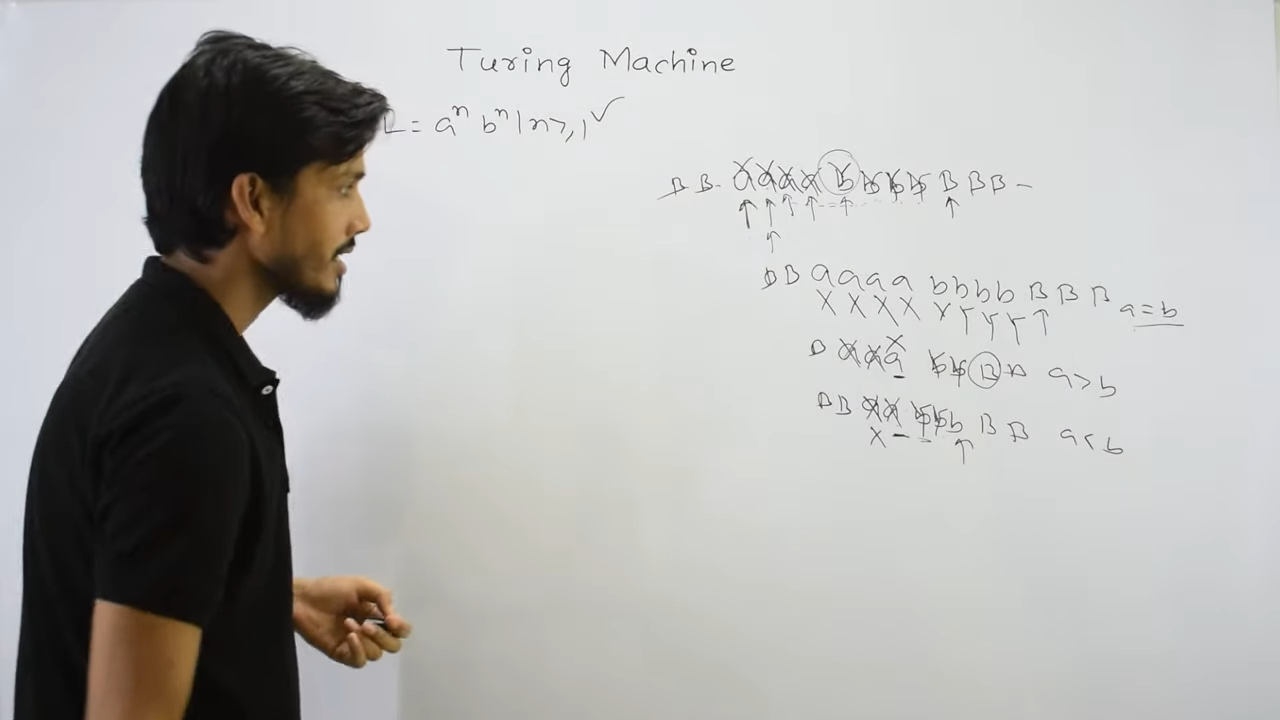 Turing Machine
L = aⁿ bⁿ | n ≥ 1 ✓
B B a a a a b b b b B B B –
B B a a a a b b b b B B B a = b
X X X X Y Y Y Y
X
B a a a b b B B a > b
B B a a b b b B B a < b
X